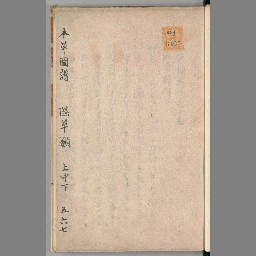 本草圖譜 隰草類 上中下 五六七